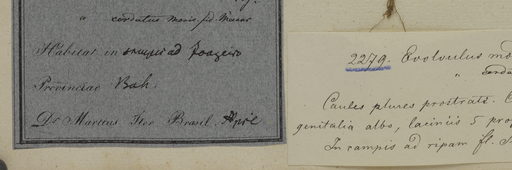 " cordatus Moric. fid Meissn
Habitat in campis ad Joazeiro
Provinciae Bah.
Dr Martius Iter Brasil. April
2279. Evolvulus
" corda
Caules plures prostrati. C
genitalia albo, laciniis 5
In campis ad ripam fl. S